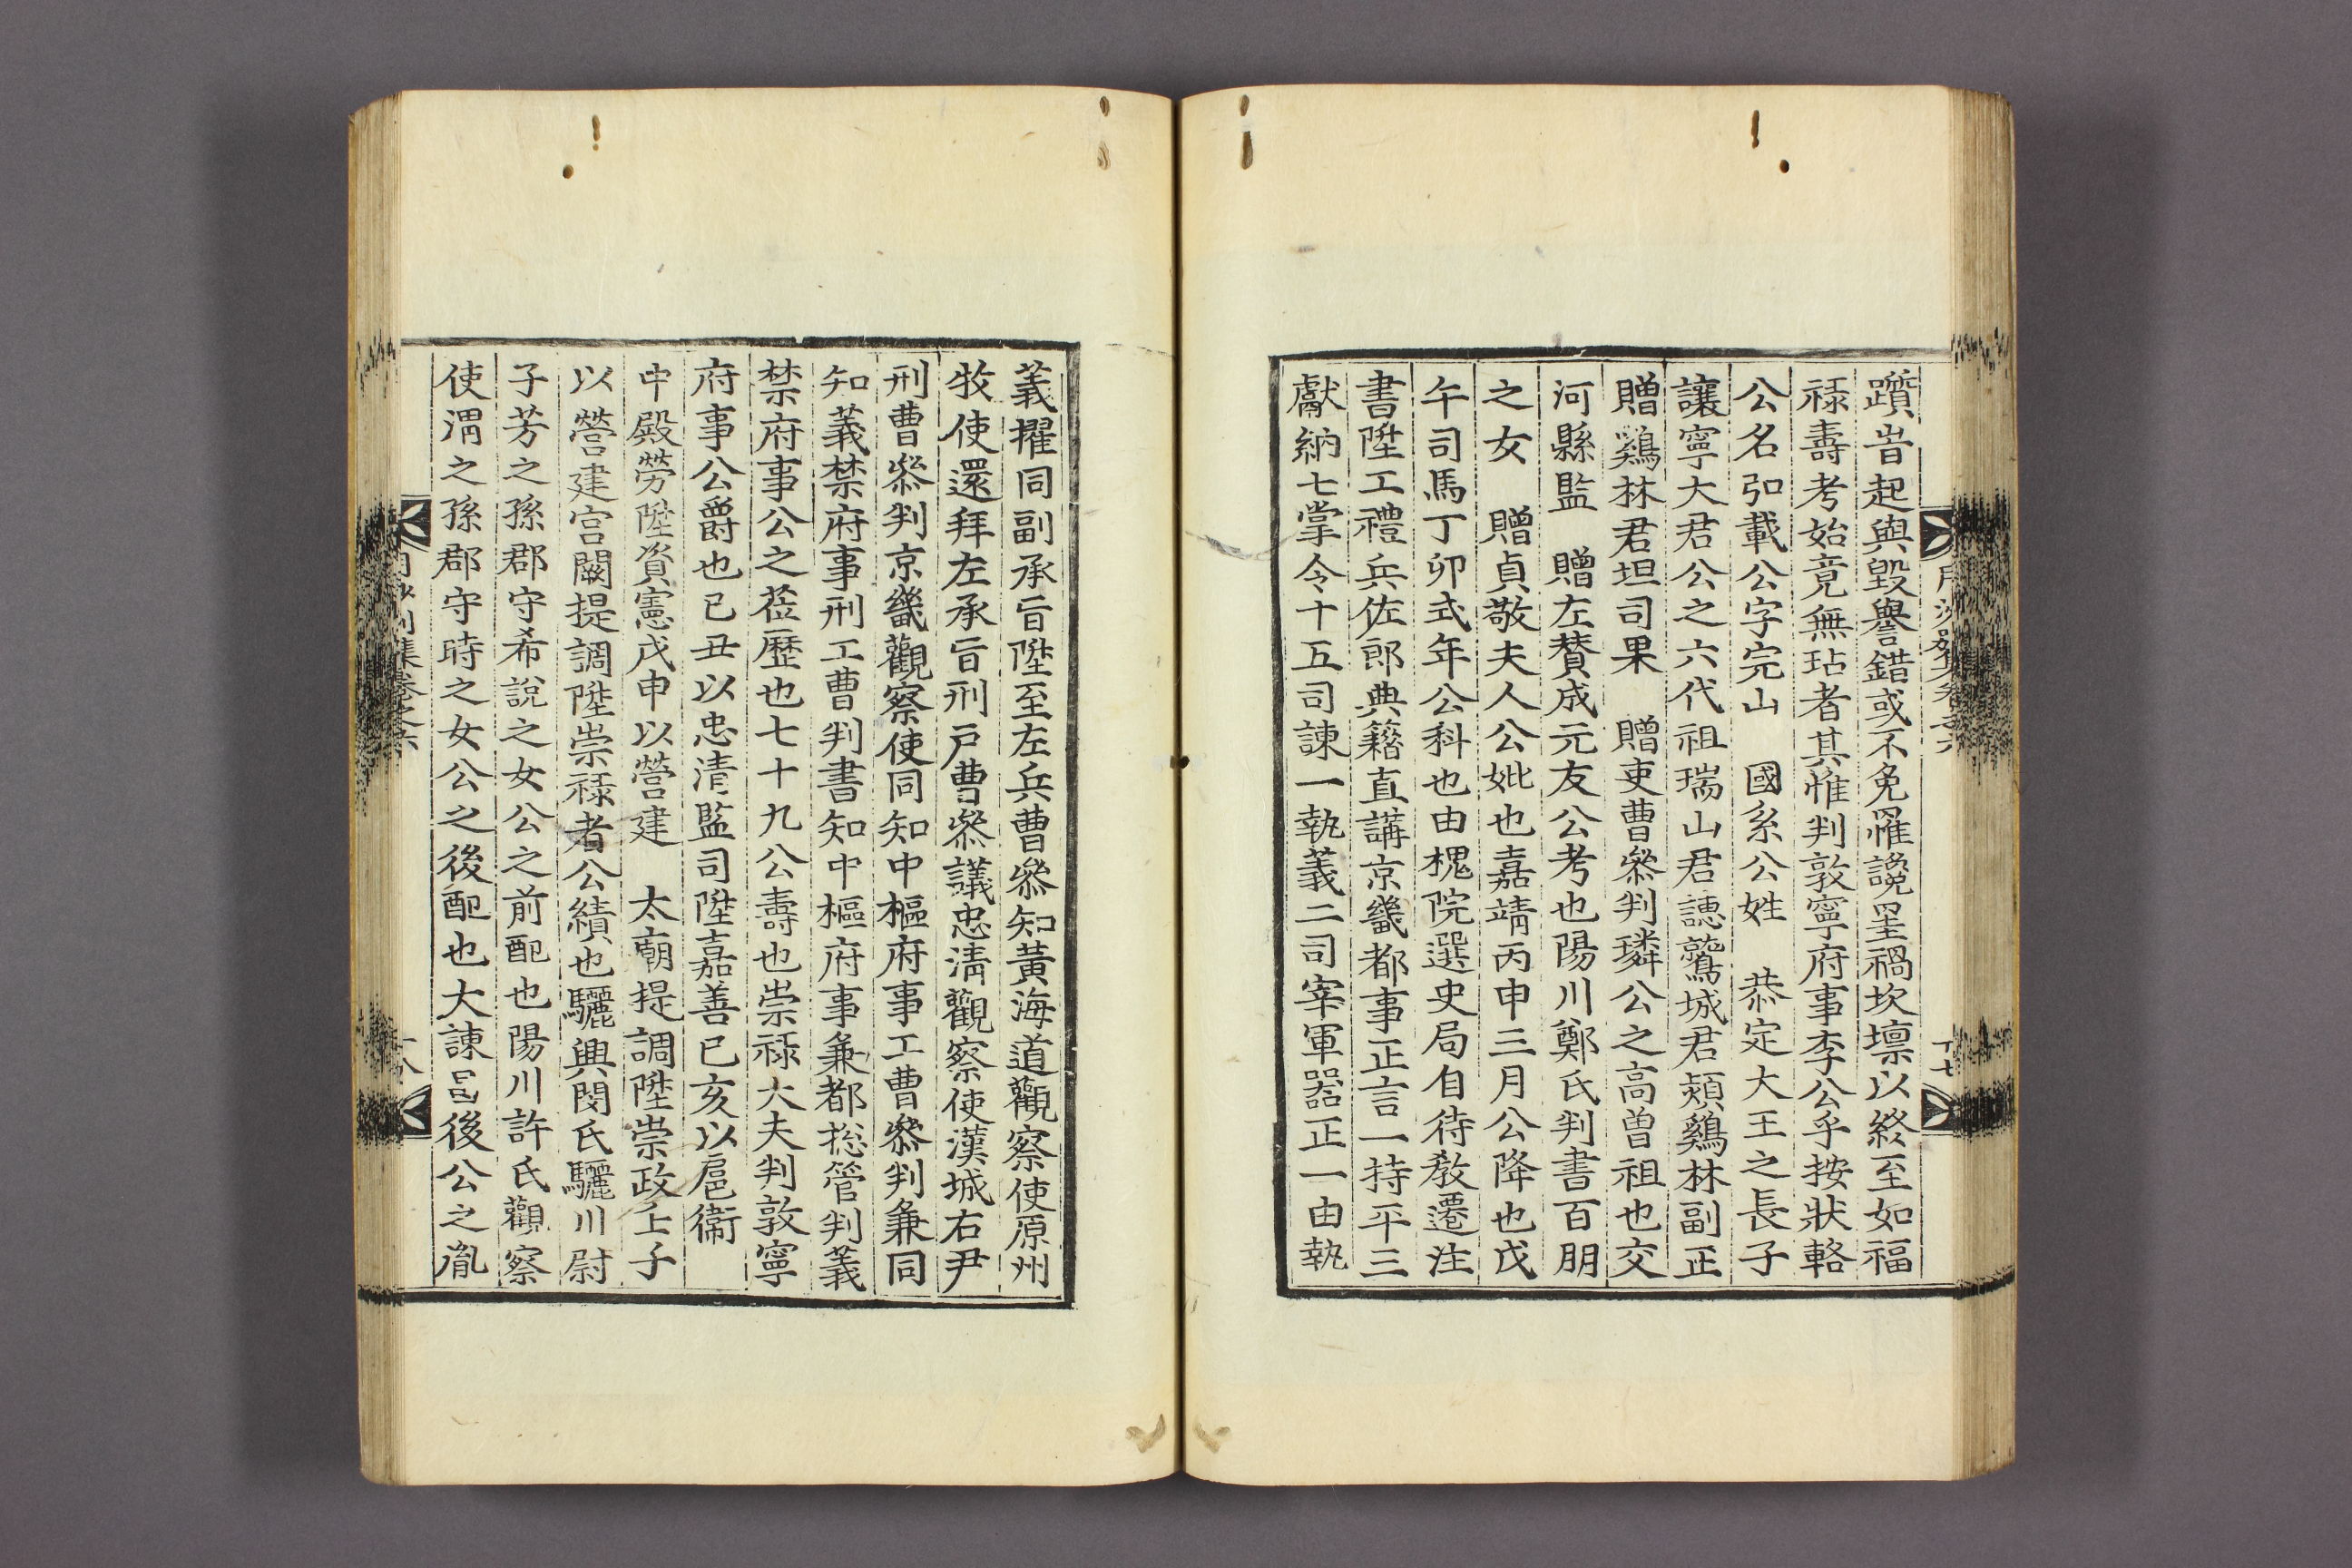 躓峕起與毀譽錯或不免罹讒罣禍坎壈以終至如福
祿壽考始竟無玷者其惟判敦寧府事李公乎按狀輅
公名弘載公字完山 國系公姓 恭定大王之長子
讓寧大君公之六代祖瑞山君譓鷲城君頍鷄林副正
贈鷄林君坦司果 贈吏曹參判璘公之高曾祖也交
河縣監 贈左贊成元友公考也陽川鄭氏判書百朋
之女 贈貞敬夫人公妣也嘉靖丙申三月公降也戊
午司馬丁卯式年公科也由槐院選史局自待敎遷注
書陞工禮兵佐郎典籍直講京畿都事正言一持平三
獻納七掌令十五司諫一執義二司宰軍器正一由執
義擢同副承旨陞至左兵曹參知黃海道觀察使原州
牧使還拜左承旨刑戶曹參議忠淸觀察使漢城右尹
刑曹參判京畿觀察使同知中樞府事工曹參判兼同
知義禁府事刑工曹判書知中樞府事兼都摠管判義
禁府事公之莅歷也七十九公壽也崇祿大夫判敦寧
府事公爵也己丑以忠淸監司陞嘉善己亥以扈衛
中殿勞陞資憲戊申以營建 太廟提調陞崇政壬子
以營建宮闕提調陞崇祿者公績也驪興閔氏驪川尉
子芳之孫郡守希說之女公之前配也陽川許氏觀察
使渭之孫郡守時之女公之後配也大諫昌後公之胤
月沙別集卷之六
十七
月沙別集卷之六
十八